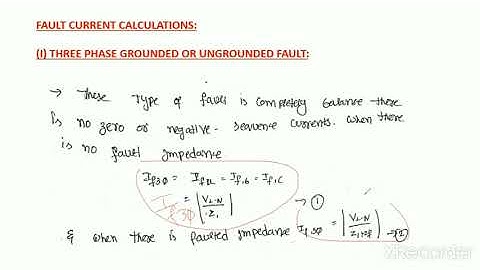 FAULT CURRENT CALCULATIONS:
(I) THREE PHASE GROUNDED OR UNGROUNDED FAULT:
→ These Type of fault is completely balance there
is no zero or negative - sequence currents. When there
is no fault impedance
If3Φ = If,a = If,b = If,c
= |VL-N / Z1| → ①
If3Φ
& When there is faulted impedance If,3Φ = |VL-N / Z1+Zf| → ②